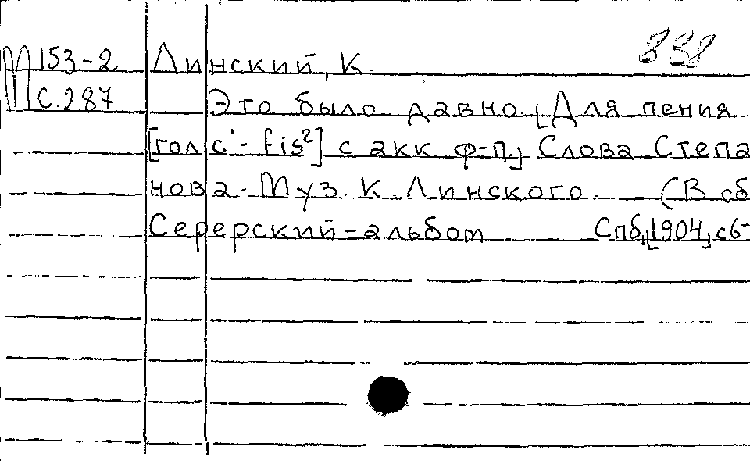 М 153-2 Линский, К. 838
С.287 Это было давно. [Для пения
[голс c'-fis²] с акк ф-п.] Слова Степа
нова. Муз. К. Линского. (В сб
Серерский-альбом Спб, [1904], с6-